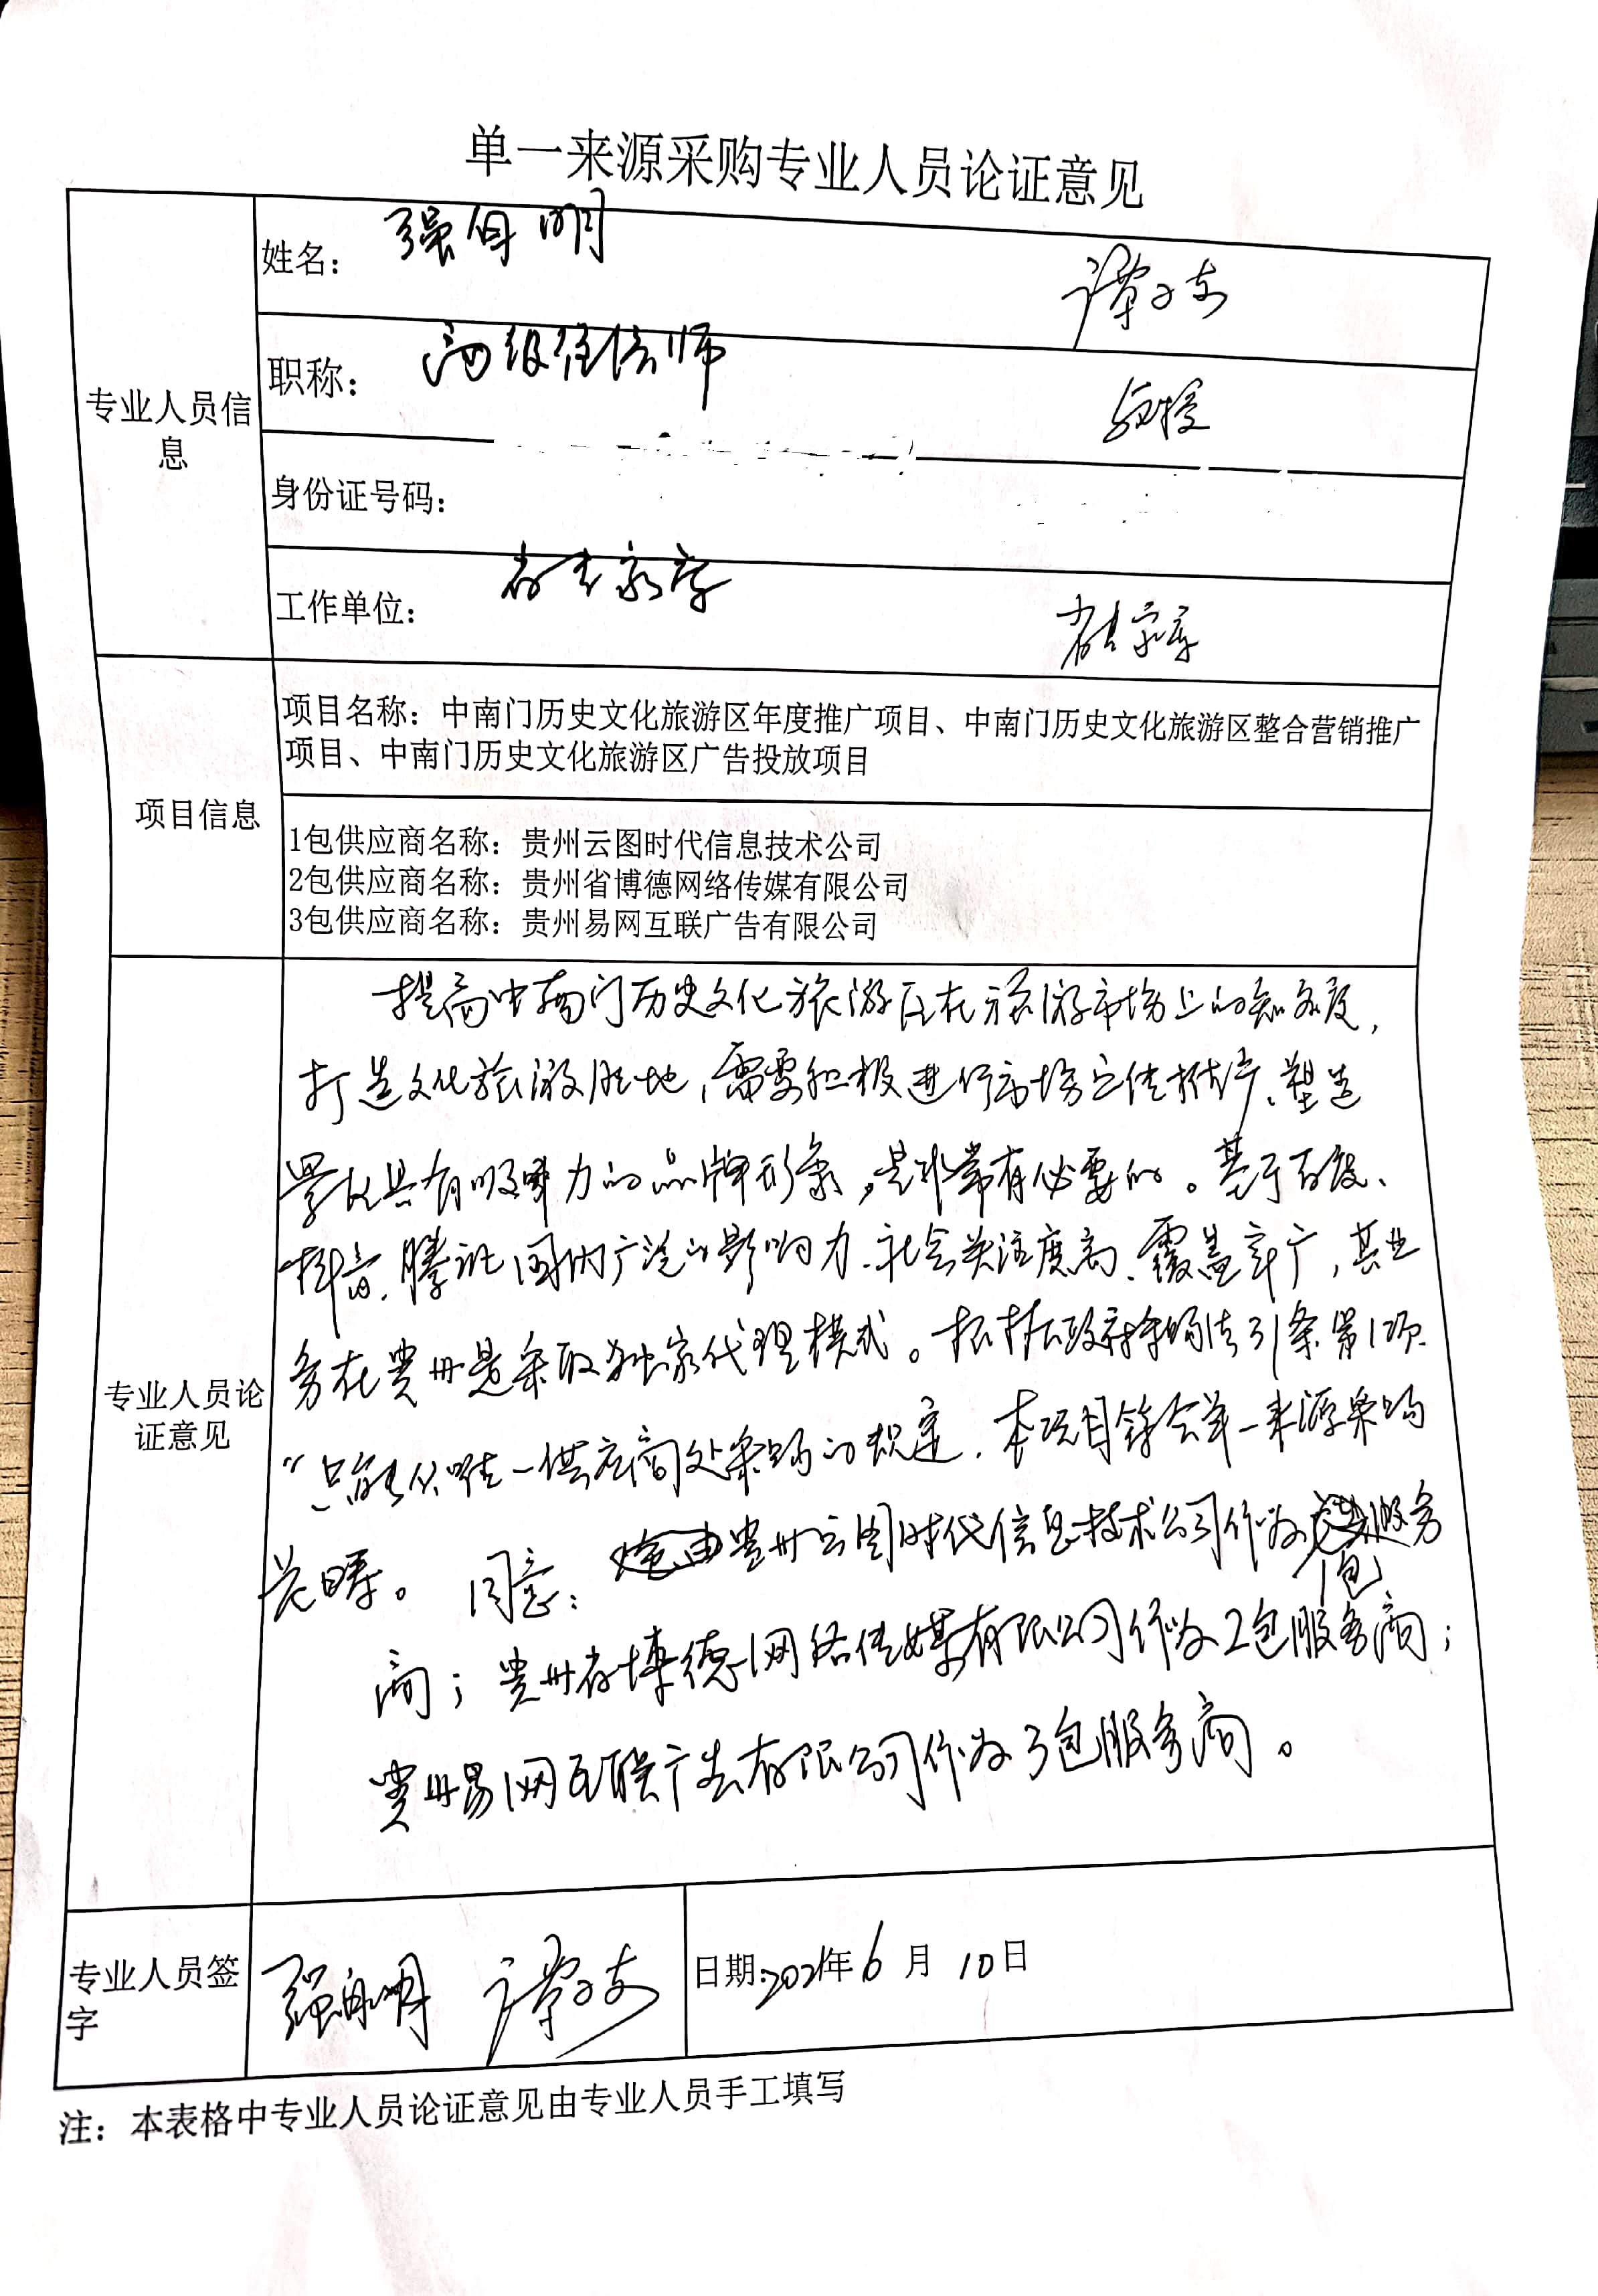 单一来源采购专业人员论证意见
专业人员信息
姓名： 强自明 谭子东
职称： 高级经济师 教授
身份证号码：
工作单位： 省专家库 省专家库
项目信息
项目名称：中南门历史文化旅游区年度推广项目、中南门历史文化旅游区整合营销推广
项目、中南门历史文化旅游区广告投放项目
1包供应商名称：贵州云图时代信息技术公司
2包供应商名称：贵州省博德网络传媒有限公司
3包供应商名称：贵州易网互联广告有限公司
专业人员论证意见
提高中南门历史文化旅游区在旅游市场上的知名度，
打造文化旅游胜地，需要积极进行市场宣传推广、塑造
景区具有吸引力的品牌形象，是非常有必要的。基于百度、
抖音、腾讯国内广泛的影响力、社会关注度高、覆盖率广，其业
务在贵州是采取独家代理模式。根据政府采购法31条第1项
“只能从唯一供应商处采购的规定，本项目符合单一来源采购
先决。 同意：贵州云图时代信息技术公司作为1包服务
商；贵州省博德网络传媒有限公司作为2包服务商；
贵州易网互联广告有限公司作为3包服务商。
专业人员签字
强自明 谭子东
日期：2021年6月10日
注：本表格中专业人员论证意见由专业人员手工填写